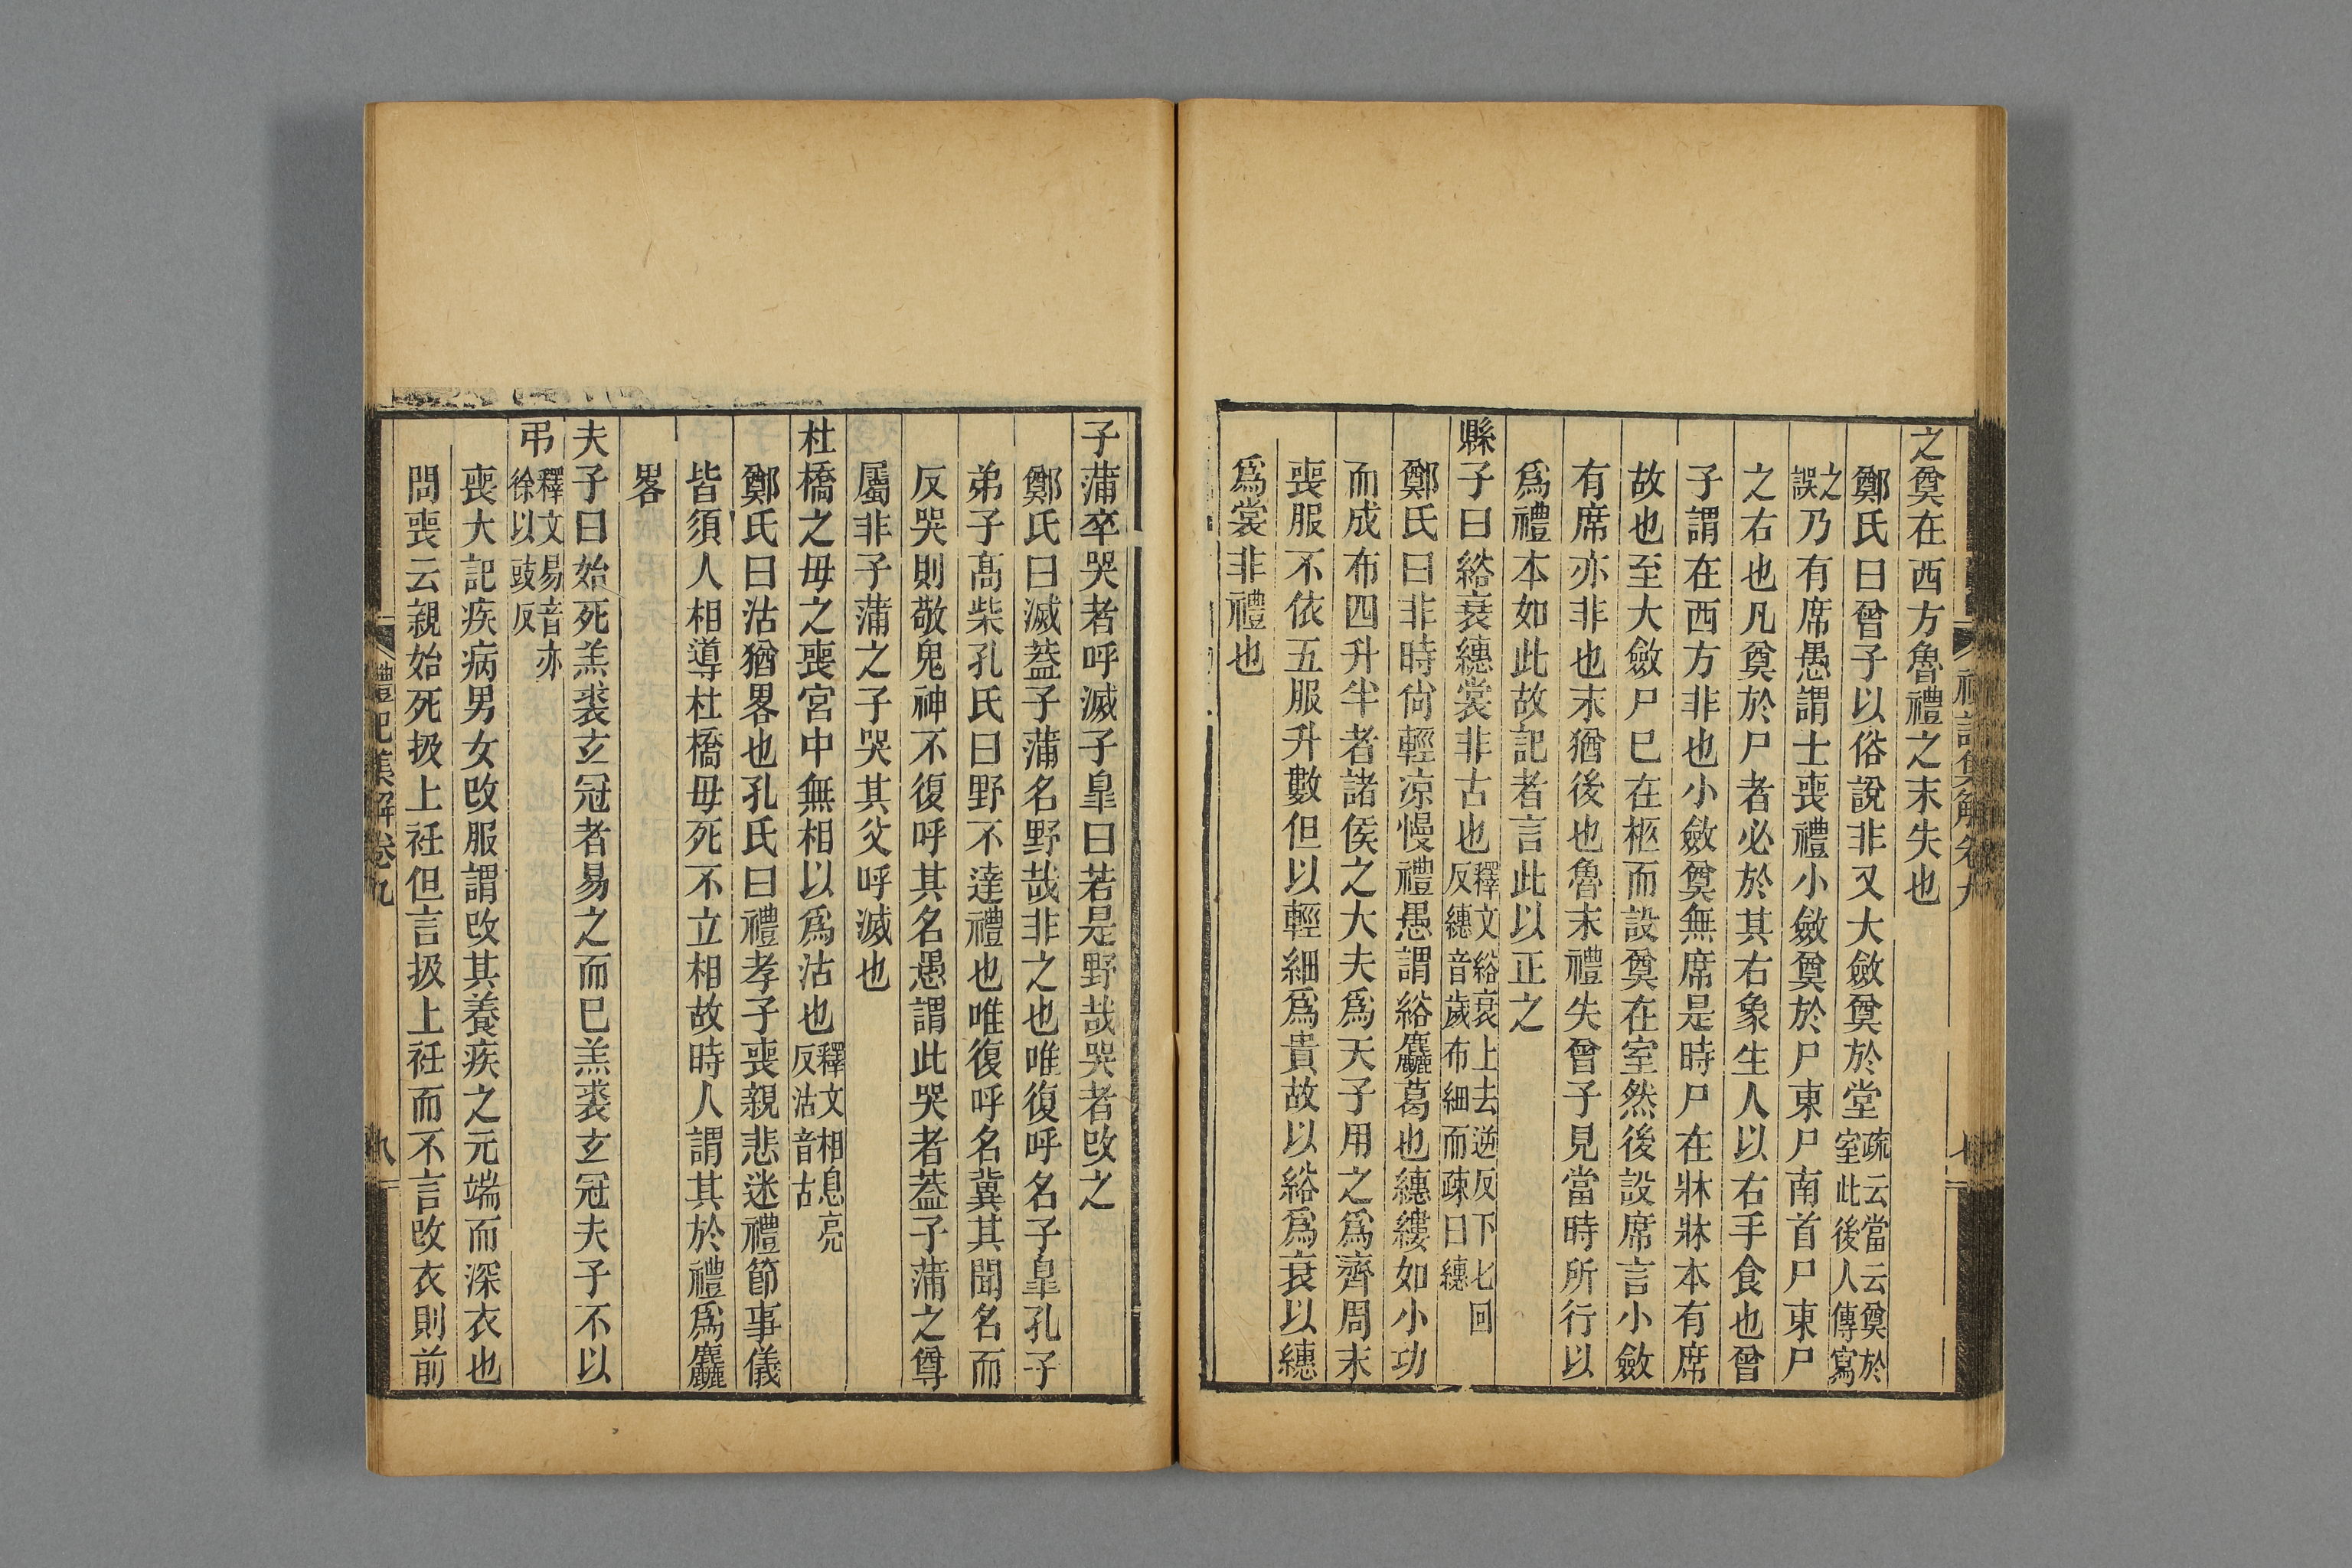 之奠在西方魯禮之末失也
鄭氏曰曾子以俗說非又大斂奠於堂疏云當云奠於室此後人傳寫
之誤乃有席愚謂士喪禮小斂奠於尸東尸南首尸東尸
之右也凡奠於尸者必於其右象生人以右手食也曾
子謂在西方非也小斂奠無席是時尸在牀牀本有席
故也至大斂尸巳在柩而設奠在室然後設席言小斂
有席亦非也末猶後也魯末禮失曾子見當時所行以
爲禮本如此故記者言此以正之
縣子曰綌衰繐裳非古也釋文綌衰上去逆反下七回反繐音歲布細而疎曰繐
鄭氏曰非時尙輕凉慢禮愚謂綌麤葛也繐縷如小功
而成布四升半者諸侯之大夫爲天子用之爲齊周末
喪服不依五服升數但以輕細爲貴故以綌爲衰以繐
爲裳非禮也
子蒲卒哭者呼滅子臯曰若是野哉哭者改之
鄭氏曰滅葢子蒲名野哉非之也唯復呼名子臯孔子
弟子髙柴孔氏曰野不達禮也唯復呼名冀其聞名而
反哭則敬鬼神不復呼其名愚謂此哭者葢子蒲之尊
屬非子蒲之子哭其父呼滅也
杜橋之毋之喪宮中無相以爲沽也釋文相息亮反沽音古
鄭氏曰沽猶畧也孔氏曰禮孝子喪親悲迷禮節事儀
皆須人相導杜橋毋死不立相故時人謂其於禮爲麤
畧
夫子曰始死羔裘玄冠者易之而巳羔裘玄冠夫子不以
弔釋文易音亦徐以豉反
喪大記疾病男女改服謂改其養疾之元端而深衣也
問喪云親始死扱上衽但言扱上衽而不言改衣則前
禮記集解卷九